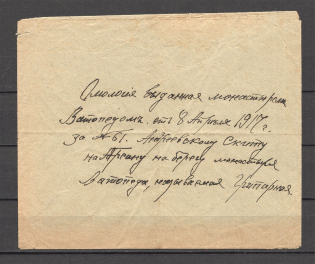 Омология выданная монастырем
Ватопедом. от 8 Апреля 1917 г.
за № 61. Андреевскому Скиту
на Арсану на берегу монастыря
Ватопеда, называемая